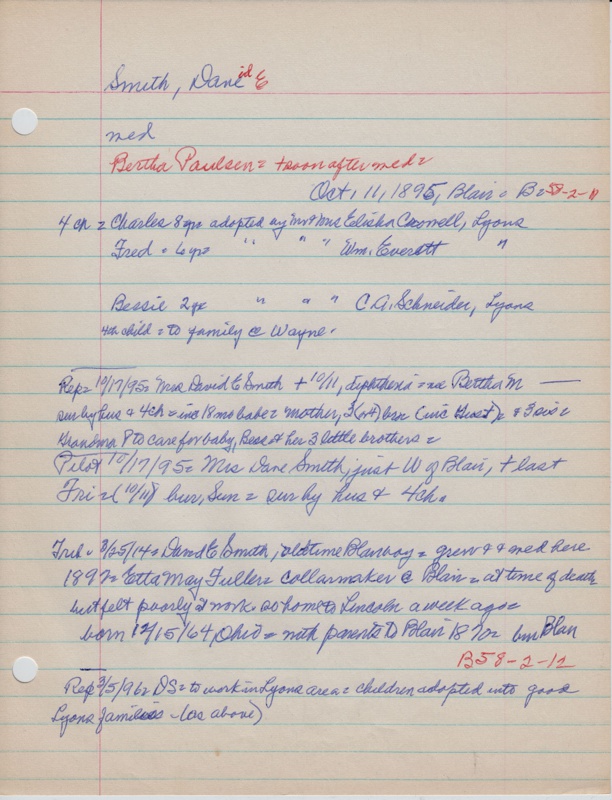 Smith, David E
med
Bertha Paulsen = + soon after med =
Oct, 11, 1895, Blair = B = 58-2-11
4 ch = Charles 8 yr adopted by Mr & Mrs Elisha Crowell, Lyons
Fred = 6 yr " " " Wm. Everett "
Bessie 2 yr " " " C.A. Schneider, Lyons
4th child = to family @ Wayne.
Rep = 10/17/95 = Mrs David E Smith + 10/11, diphtheria = nee Bertha M —
sur by hus & 4 ch = inc 18 mo babe = mother, 3 bro & 3 sis =
Grandma P to care for baby, Bess & her 3 little brothers =
Pilot 10/17/95 = Mrs Dave Smith, just W of Blair, + last
Fri = (10/11) bur, Sun = sur by hus & 4 ch.
Trib = 3/25/14 = David E Smith, oldtime Blair boy = grew & med here
1892 = Etta May Fuller = collarmaker @ Blair = at time of death
but felt poorly @ work so home to Lincoln a week ago =
born 12/15/64, Ohio = with parents to Blair 1870 = bur Blair
B58-2-12
Rep 3/5/96 = DS = to work in Lyons area = children adopted into good
Lyons families - (as above)